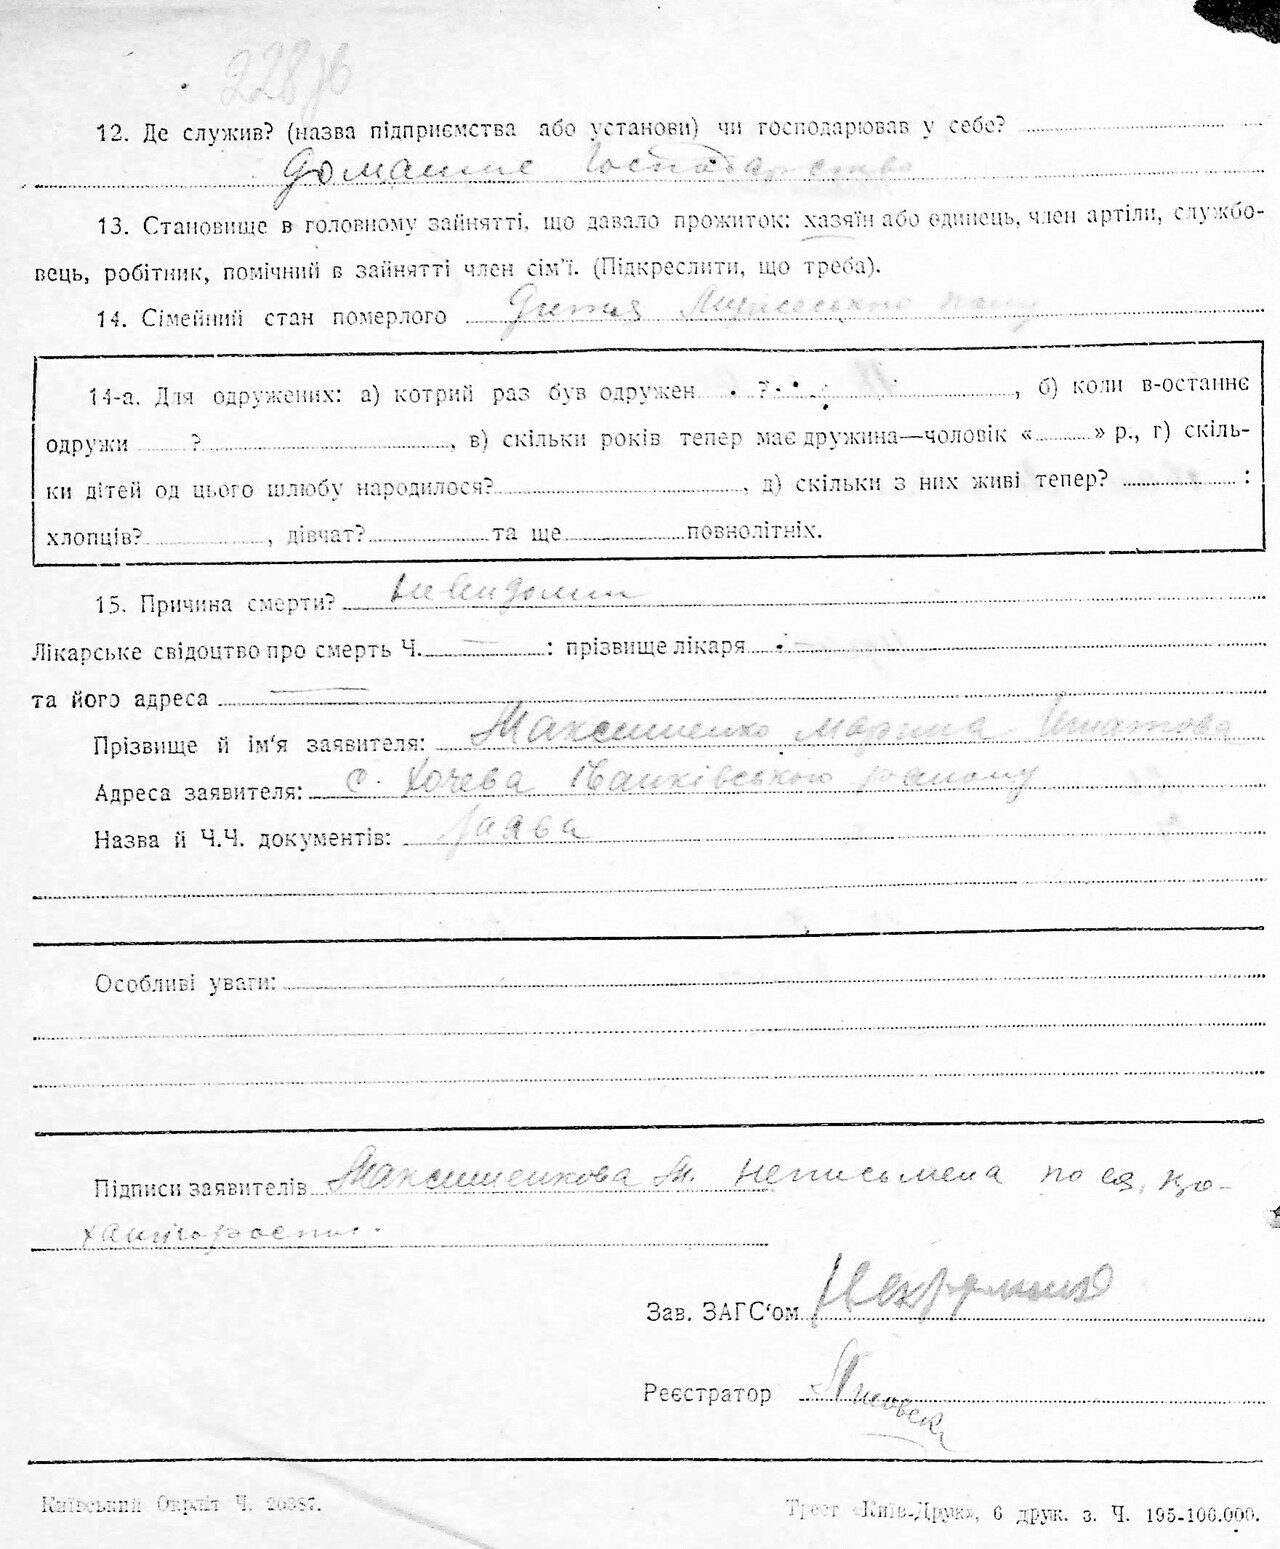 228зв
12. Де служив? (назва підприємства або установи) чи господарював у себе?
домашнє господарство
13. Становище в головному зайнятті, що давало прожиток: хазяїн або одинець, член артіли, службо-
вець, робітник, помічний в зайнятті член сім’ї. (Підкреслити, що треба).
14. Сімейний стан померлого Дитя
14-а. Для одружених: а) котрий раз був одружен ?, б) коли в-останнє
одружи ?, в) скільки років тепер має дружина—чоловік « » р., г) скіль-
ки дітей од цього шлюбу народилося?, д) скільки з них живі тепер? :
хлопців?, дівчат? та ще повнолітніх.
15. Причина смерти? невидоми
Лікарське свідоцтво про смерть Ч. — : прізвище лікаря —
та його адреса —
Прізвище й ім‘я заявителя: Максименко Марина Игнатова
Адреса заявителя: с. Хочева Іванківського району
Назва й Ч.Ч. документів: заява
Особливі уваги:
Підписи заявителів Максименкова М. неписьмена по її
Зав. ЗАГС‘ом
Реєстратор
Київський Окрліт Ч. 20387.
Трест «Київ-Друк», 6 друк. з. Ч. 195-100.000.